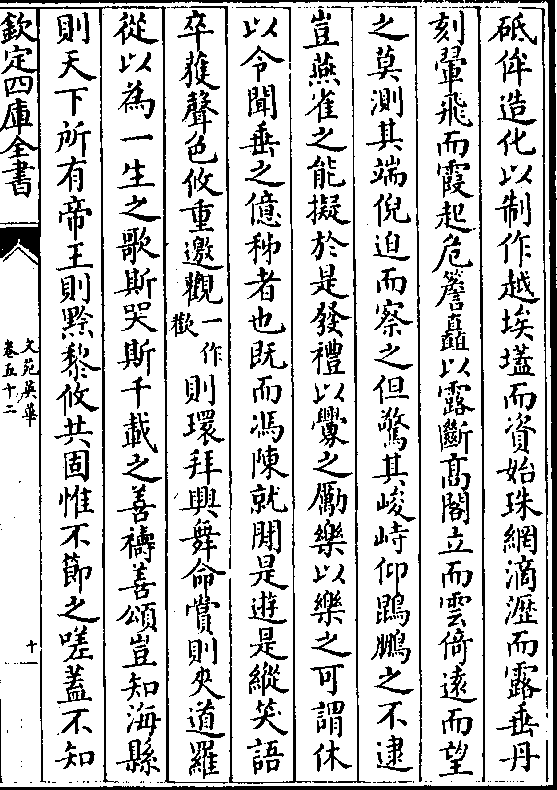 砥侔造化以制作越埃壒而資始珠網滴瀝而露垂丹
刻翬飛而霞起危簷矗以露斷髙閣立而雲倚逺而望
之莫測其端倪迫而察之但驚其峻峙仰鵾鵬之不逮
豈燕雀之能擬於是發禮以釁之勵樂以樂之可謂休
以令聞垂之億秭者也既而馮陳就閒是遊是縱笑語
卒獲聲色攸重邀觀一作歡則環拜興舞命賞則夾道羅
從以為一生之歌斯哭斯千載之善禱善頌豈知海縣
則天下所有帝王則黔黎攸共固惟不節之嗟蓋不知
欽定四庫全書
文苑英華
卷五十二
十